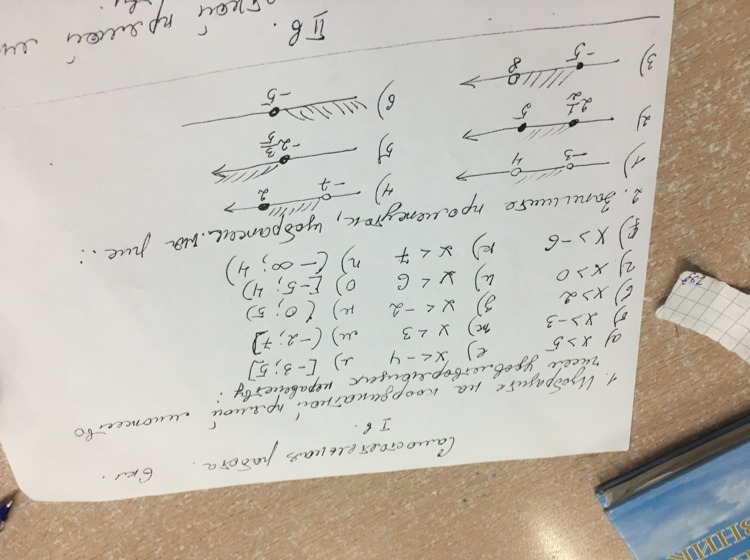 Самостоятельная работа. 6 кл.
I в.
1. Изобразите на координатной прямой множество
чисел удовлетворяющих неравенству:
а) x > 5 е) x < -4 л) [-3; 5]
б) x > -3 ж) x < 3 м) (-2; 7]
в) x > 2 з) x < -2 н) (0; 5)
г) x > 0 и) x < 6 о) [-5; 4)
д) x > -6 к) x < 7 п) (-∞; 4)
2. Запишите промежуток, изображен. на рис.:
1) -3 4 4) -7 2
2) 2 1/2 5 5) -2 3/5
3) -5 8 6) -5
II в.
прямой